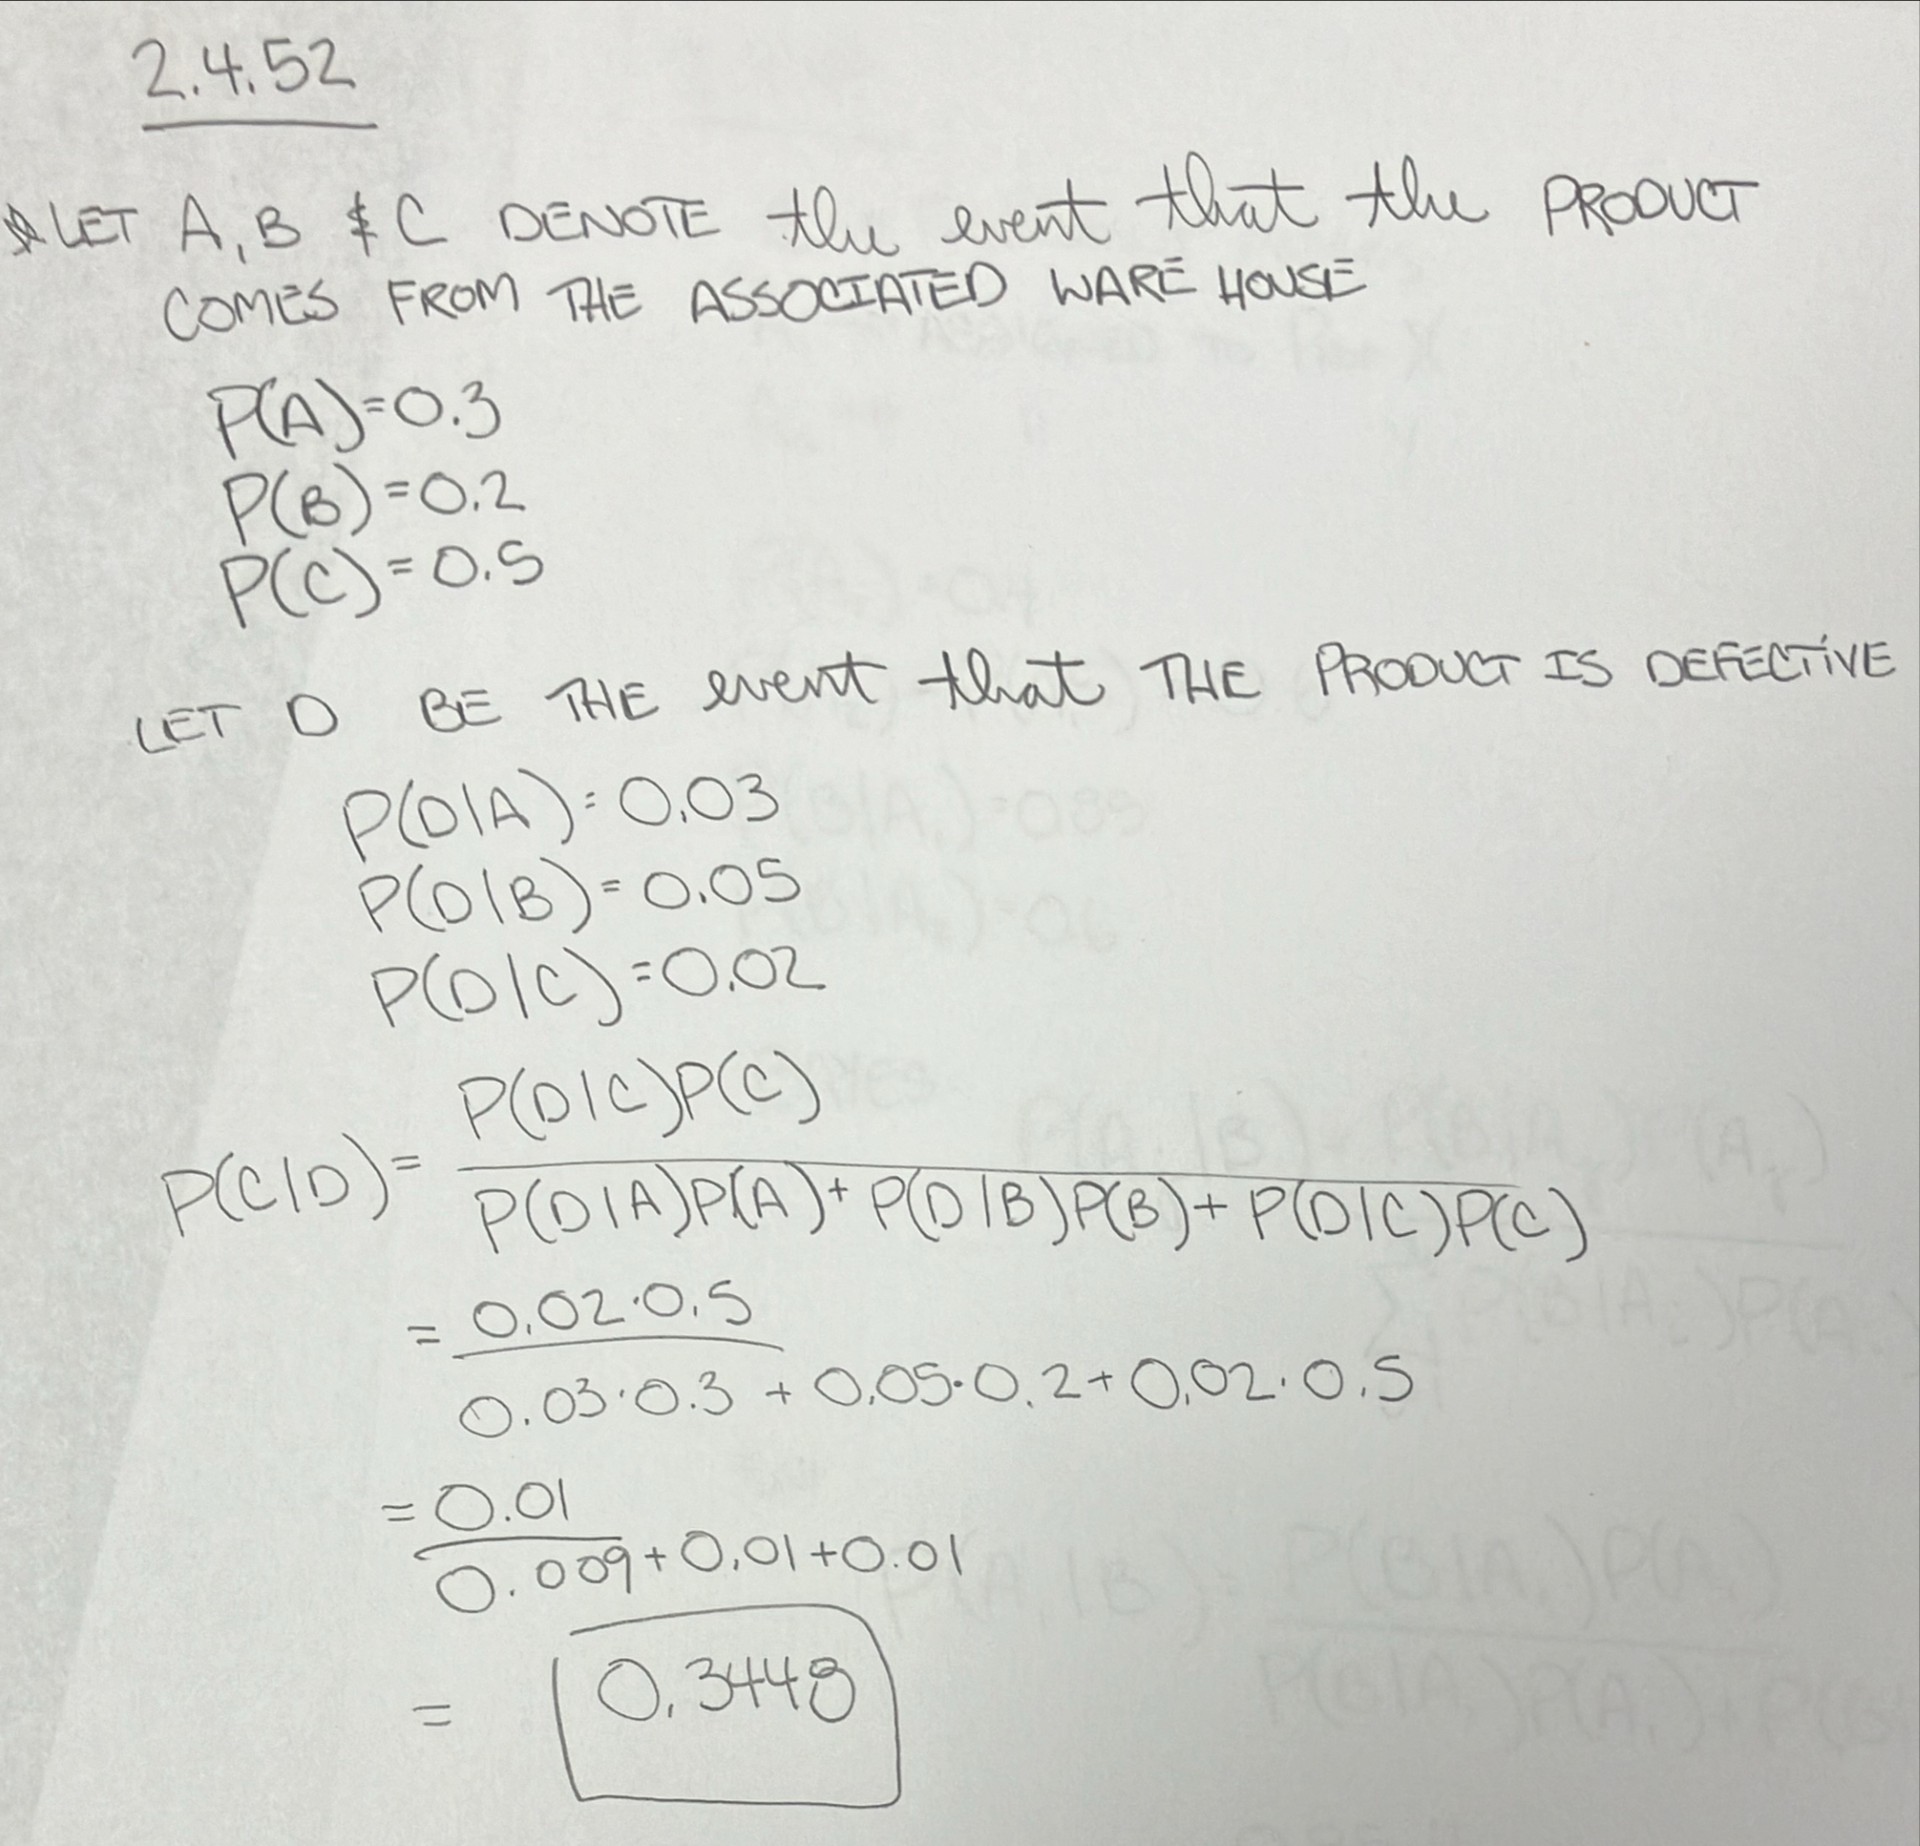 2.4.52
LET A, B & C DENOTE the event that the PRODUCT
COMES FROM THE ASSOCIATED WARE HOUSE
P(A)=0.3
P(B)=0.2
P(C)=0.5
LET D BE THE event that THE PRODUCT IS DEFECTIVE
P(D|A)=0.03
P(D|B)=0.05
P(D|C)=0.02
P(D|C)P(C)
P(C|D)=
P(D|A)P(A)+P(D|B)P(B)+P(D|C)P(C)
= 0.02·0.5
0.03·0.3 + 0.05·0.2+0.02·0.5
=0.01
0.009+0.01+0.01
= 0.3448